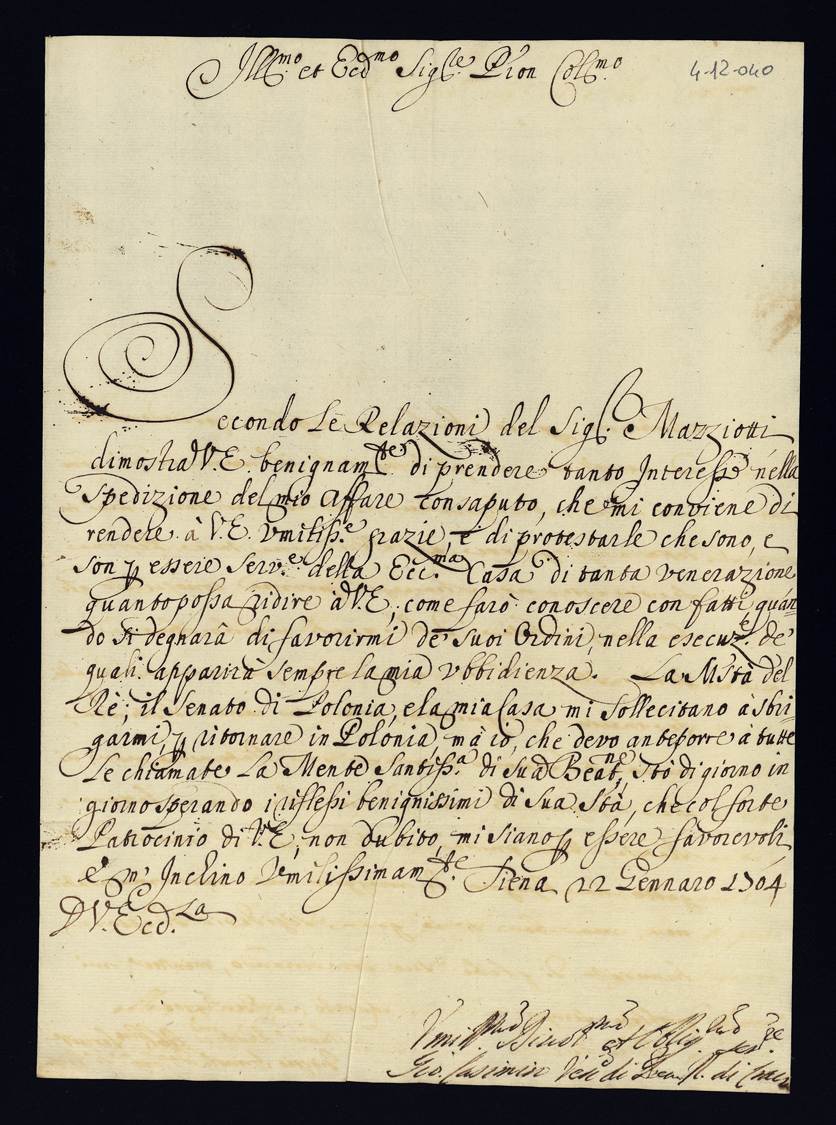 Ill.mo et Ecc.mo Sig.re P'ron Col.mo
4-12-040
Secondo le Relazioni del Sig.r Mazziotti
dimostra V.E. benignam.te di prendere tanto Interesse nella
spedizione del mio affare consaputo, che mi conviene di
rendere à V.E. Vmiliss.e grazie, e di protestarle che sono, e
son p essere Serv.e della Ecc.ma Casa di tanta venerazione
quanto possa ridire à V.E, come farò conoscere con fatti quan=
do si degnarà di favorirmi de suoi Ordini, nella esecuz.e de
quali apparirà sempre la mia vbbidienza. La M.stà del
Rè, il Senato di Polonia, e la mia Casa mi sollecitano à sbri=
garmi, p ritornare in Polonia, mà io, che devo anteporre à tutte
le chiamate la Mente Santiss.a di Sua Beat.ne, stò di giorno in
giorno sperando i riflessi benignissimi di Sua S.tà, che col forte
Patrocinio di V.E, non dubito, mi siano p essere favorevoli
e m' Inchino Vmilissimam.te. Siena 22 Gennaro 1704
D V. Ecc.la
Vmill.mo Divot.mo et Obblig.mo ser.re
Gio. Casimiro di